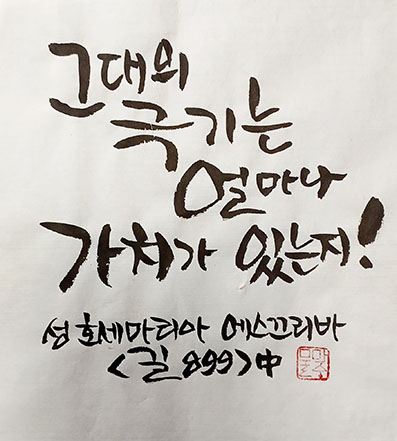 그대의
극기는
얼마나
가치가 있는지!
성 호세마리아 에스끄리바
<길 899>中